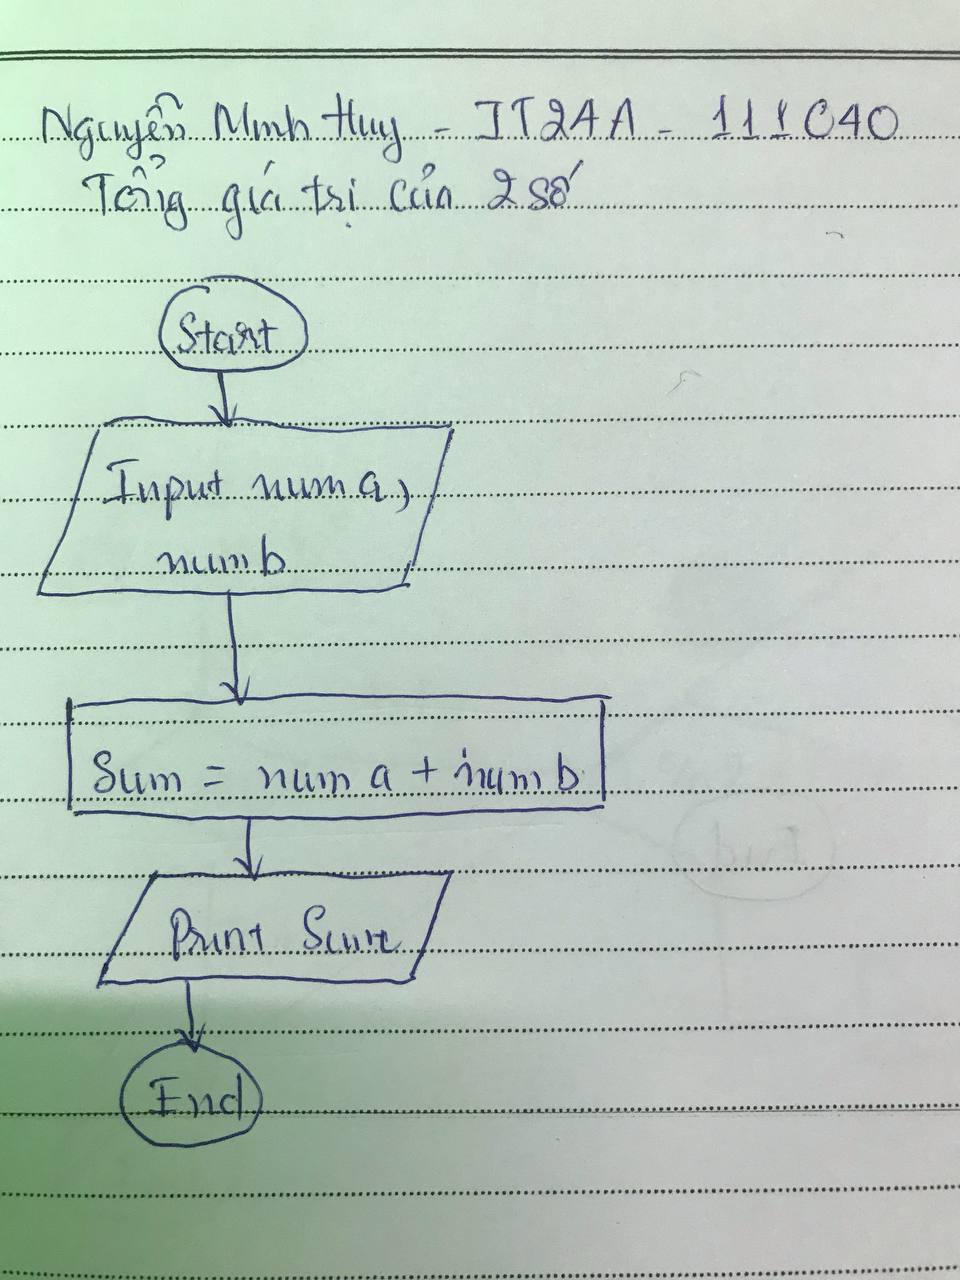 Nguyễn Minh Huy - IT24A - 111C40
Tổng giá trị của 2 số
Start
Input num a,
num b
Sum = num a + num b
Print Sum
End